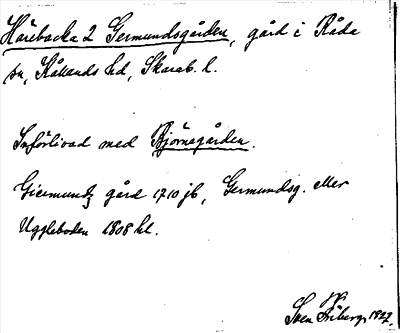 Härebacka 2 Germundsgården, gård i Råda
sn, Kållands hd, Skarab. l.
Införlivad med Björnegården.
Giermundz gård 1710 jb, Germundsg. eller
Uggleboden 1808 hl.
Sven Friberg 1927.